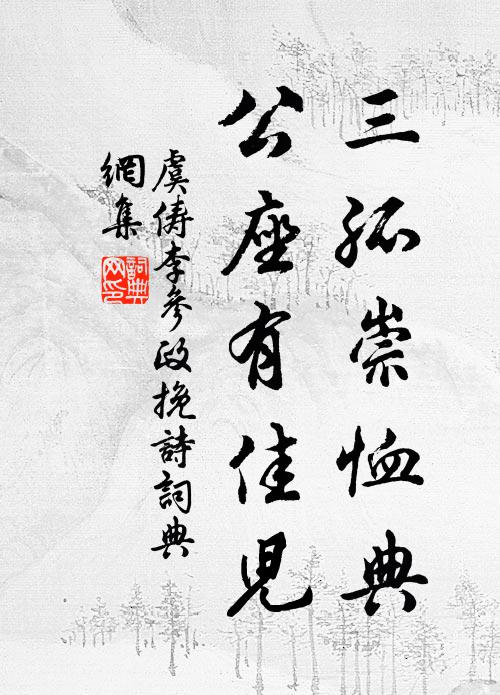 三孤崇恤典
公座有佳兒
虞儔李參政挽詩詞典
網集
詞典網印